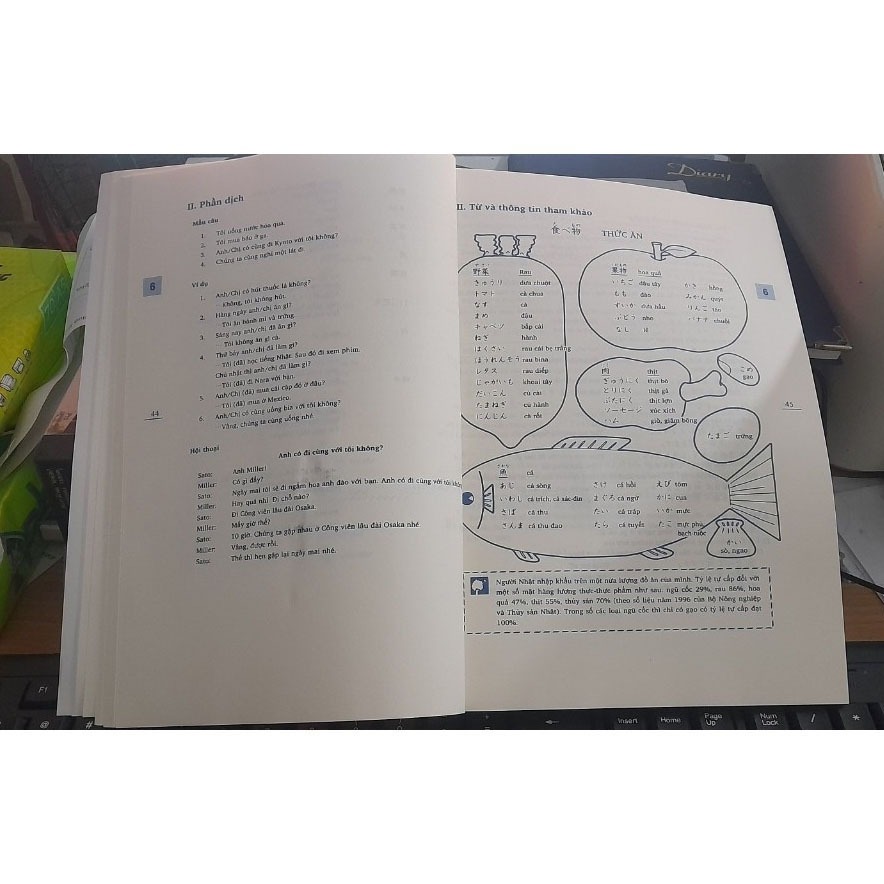 II. Phần dịch
Mẫu câu
1. Tôi uống nước hoa quả.
2. Tôi mua báo ở ga.
3. Anh/Chị có cùng đi Kyoto với tôi không?
4. Chúng ta cùng nghỉ một lát đi.
6
Ví dụ
1. Anh/Chị có hút thuốc lá không?
- Không, tôi không hút.
2. Hàng ngày anh/chị ăn gì?
- Tôi ăn bánh mì và trứng.
3. Sáng nay anh/chị đã ăn gì?
- Tôi không ăn gì cả.
4. Thứ bảy anh/chị đã làm gì?
- Tôi (đã) học tiếng Nhật. Sau đó đi xem phim.
Chủ nhật thì anh/chị đã làm gì?
- Tôi (đã) đi Nara với bạn.
5. Anh/Chị (đã) mua cái cặp đó ở đâu?
- Tôi (đã) mua ở Mexico.
6. Anh/Chị có cùng uống bia với tôi không?
- Vâng, chúng ta cùng uống nhé.
44
Hội thoại
Anh có đi cùng với tôi không?
Sato: Anh Miller!
Miller: Có gì đấy?
Sato: Ngày mai tôi sẽ đi ngắm hoa anh đào với bạn. Anh có đi cùng với tôi không
Miller: Hay quá nhỉ. Đi chỗ nào?
Sato: Đi Công viên lâu đài Osaka.
Miller: Mấy giờ thế?
Sato: 10 giờ. Chúng ta gặp nhau ở Công viên lâu đài Osaka nhé.
Miller: Vâng, được rồi.
Sato: Thế thì hẹn gặp lại ngày mai nhé.
II. Từ và thông tin tham khảo
食べ物 THỨC ĂN
野菜 Rau
きゅうり dưa chuột
トマト cà chua
なす cà
まめ đậu
キャベツ bắp cải
ねぎ hành
はくさい rau cải bẹ trắng
ほうれんそう rau bina
レタス rau diếp
じゃがいも khoai tây
だいこん củ cải
たまねぎ củ hành
にんじん cà rốt
果物 hoa quả
いちご dâu tây かき hồng
もも đào みかん quýt
すいか dưa hấu りんご táo
ぶどう nho バナナ chuối
なし lê
6
肉 thịt
ぎゅうにく thịt bò
とりにく thịt gà
ぶたにく thịt lợn
ソーセージ xúc xích
ハム giò, giăm bông
こめ
gạo
45
たまご trứng
魚 cá
あじ cá sòng さけ cá hồi えび tôm
いわし cá trích, cá sác-đin まぐろ cá ngừ かに cua
さば cá thu たい cá tráp いか mực
さんま cá thu đao たら cá tuyết たこ mực phủ,
bạch tuộc
かい
sò, ngao
Người Nhật nhập khẩu trên một nửa lượng đồ ăn của mình. Tỷ lệ tự cấp đối với
một số mặt hàng lương thực-thực phẩm như sau: ngũ cốc 29%, rau 86%, hoa
quả 47%, thịt 55%, thủy sản 70% (theo số liệu năm 1996 của Bộ Nông nghiệp
và Thủy sản Nhật). Trong số các loại ngũ cốc thì chỉ có gạo có tỷ lệ tự cấp đạt
100%.
Diary
F1
@
#
Insert
Home
Page
Up
Num
Lock
/
*